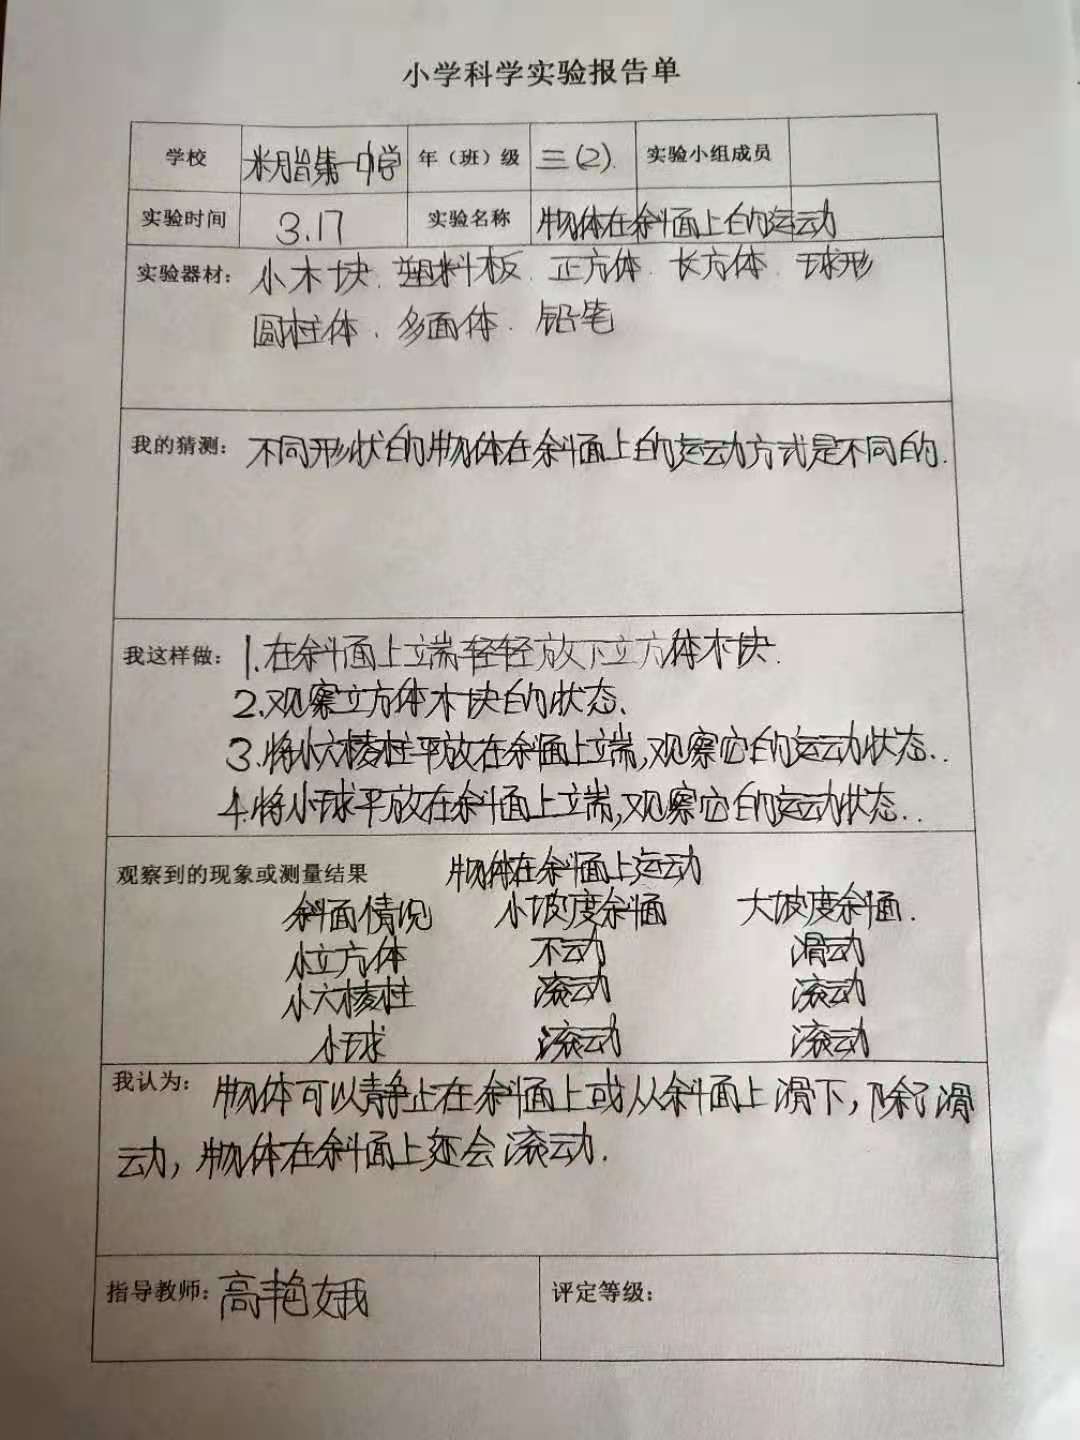 小学科学实验报告单
学校 米脂第一中学 年（班）级 三(2). 实验小组成员
实验时间 3.17 实验名称 物体在斜面上的运动
实验器材： 小木块. 塑料板. 正方体. 长方体. 球形
圆柱体. 多面体. 铅笔
我的猜测： 不同形状的物体在斜面上的运动方式是不同的.
我这样做： 1.在斜面上立端轻轻放下立方体木块.
2.观察立方体木块的状态.
3.将小六棱柱平放在斜面上端,观察它的运动状态..
4.将小球平放在斜面上立端,观察它的运动状态..
观察到的现象或测量结果 物体在斜面上运动
斜面情况 小坡度斜面 大坡度斜面.
小立方体 不动 滑动
小六棱柱 滚动 滚动
小球 滚动 滚动
我认为： 物体可以静止在斜面上或从斜面上滑下，除了滑
动，物体在斜面上还会滚动.
指导教师：高艳娥 评定等级：